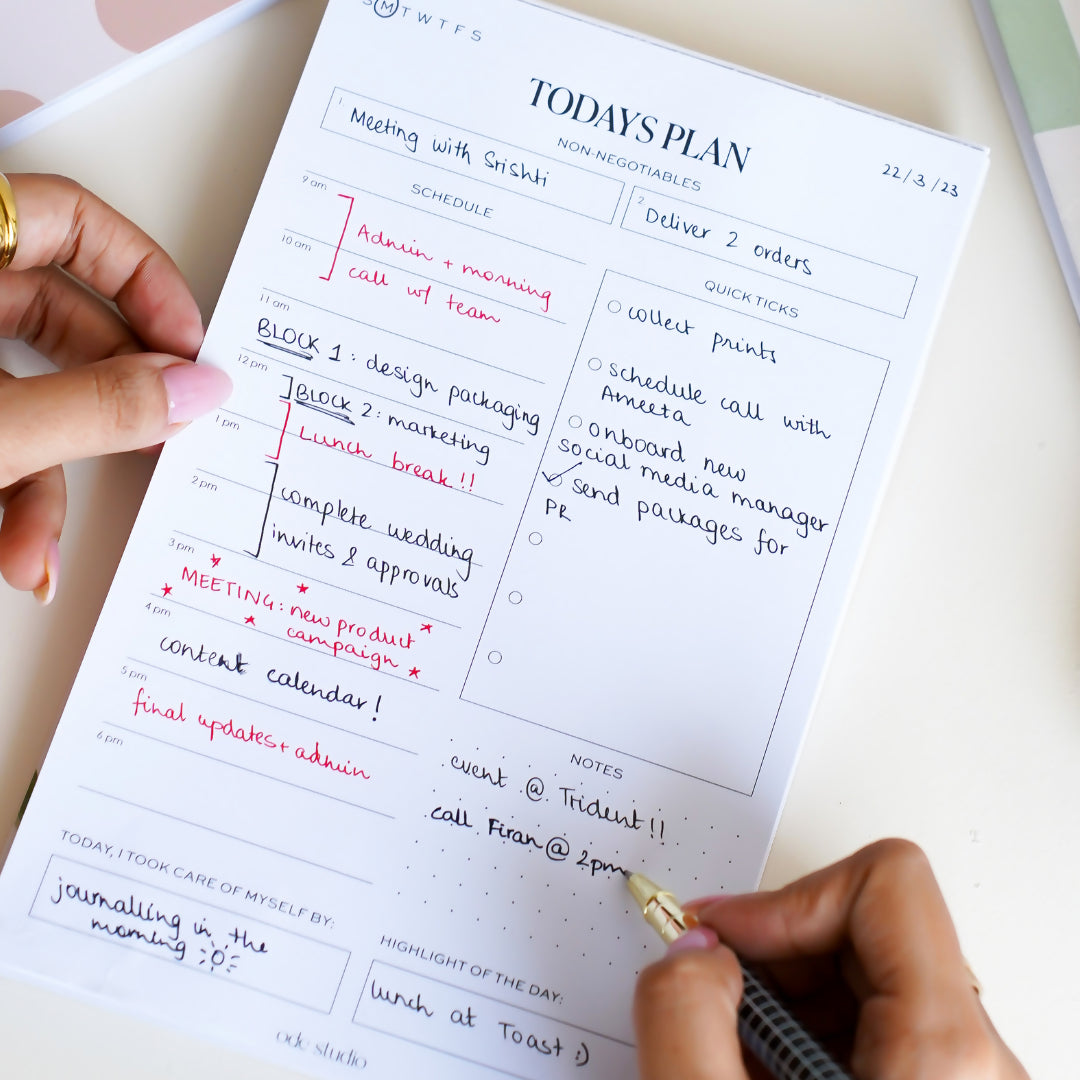 S M T W T F S
TODAYS PLAN
22/3/23
NON-NEGOTIABLES
1. Meeting with Srishti
2. Deliver 2 orders
SCHEDULE
9 am
Admin + morning
10 am
call w/ team
11 am
BLOCK 1: design packaging
12 pm
BLOCK 2: marketing
1 pm
Lunch break!!
2 pm
complete wedding
invites & approvals
3 pm
MEETING: new product
campaign
4 pm
content calendar!
5 pm
final updates + admin
6 pm
QUICK TICKS
collect prints
schedule call with
Ameeta
onboard new
social media manager
send packages for
PR
NOTES
event @ Trident!!
call Firan @ 2pm
TODAY, I TOOK CARE OF MYSELF BY:
journalling in the
morning
HIGHLIGHT OF THE DAY:
lunch at Toast :)
ode studio